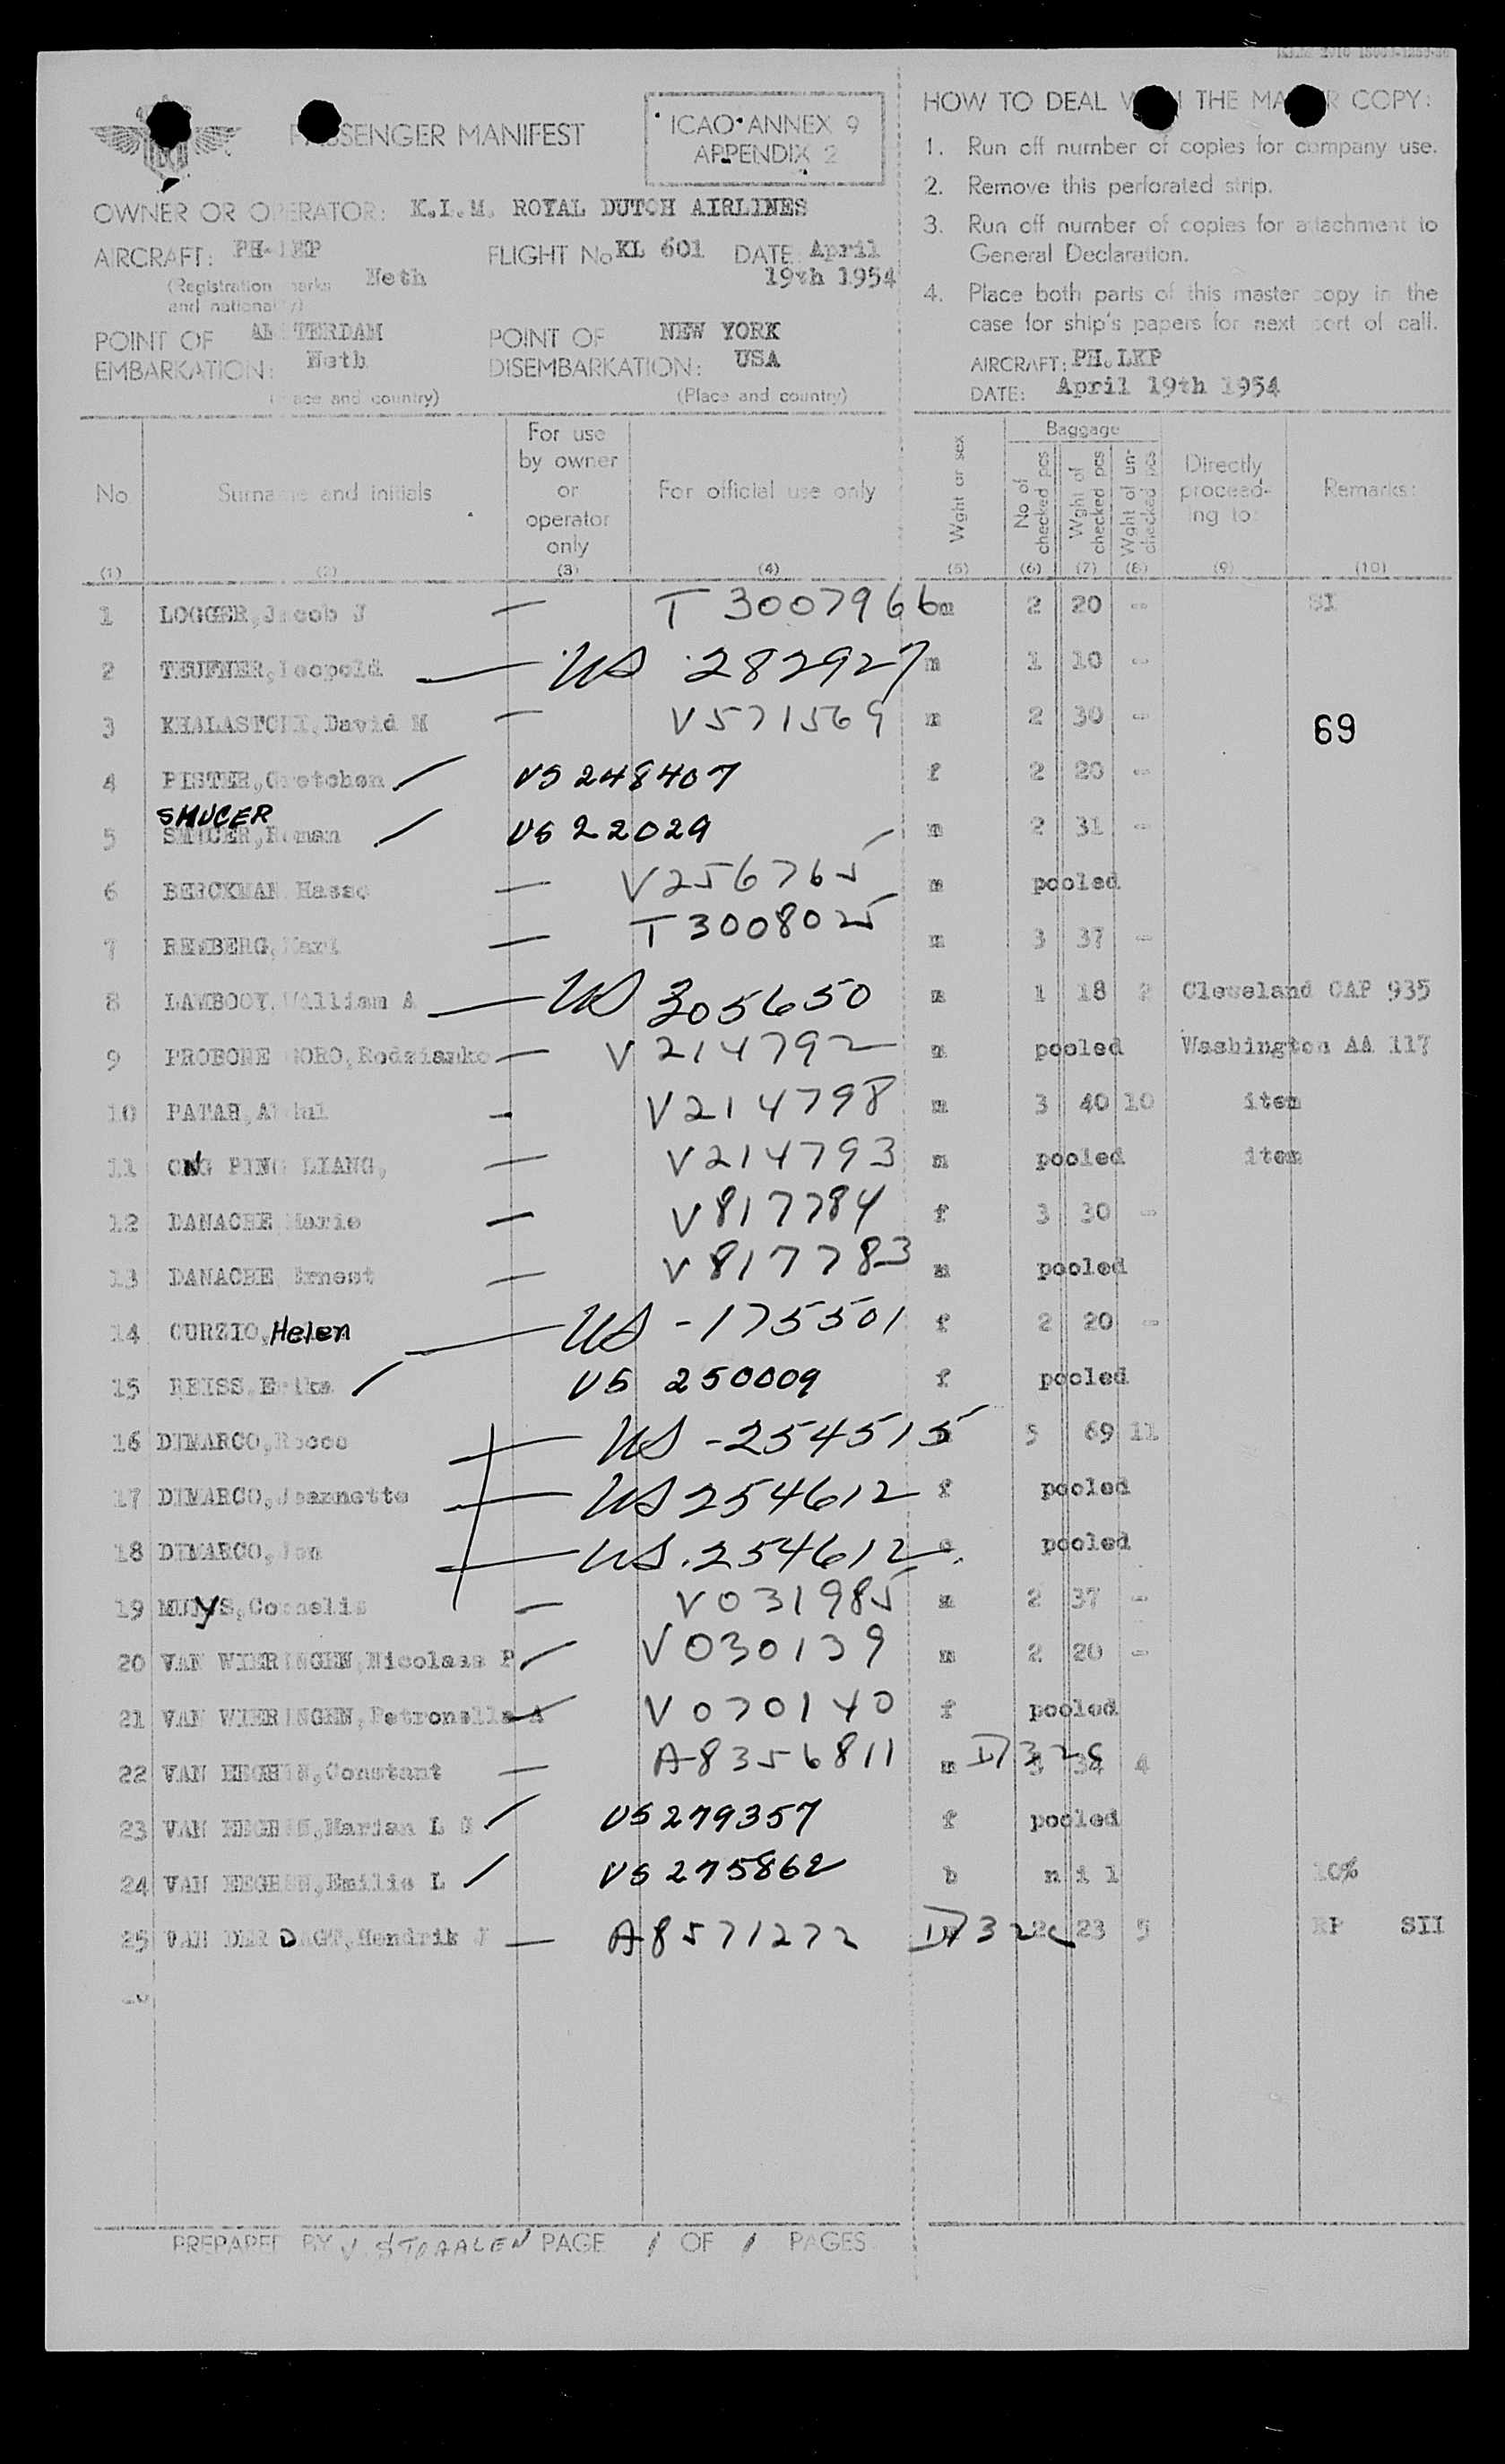 PASSENGER MANIFEST
ICAO ANNEX 9
APPENDIX 2
OWNER OR OPERATOR: K.L.M. ROYAL DUTCH AIRLINES
AIRCRAFT: PH-LKP
(Registration marks and nationality) Neth
FLIGHT No KL 601 DATE: April 19th 1954
POINT OF EMBARKATION: AMSTERDAM Neth
(Place and country)
POINT OF DISEMBARKATION: NEW YORK USA
(Place and country)
HOW TO DEAL WITH THE MASTER COPY:
1. Run off number of copies for company use.
2. Remove this perforated strip.
3. Run off number of copies for attachment to
General Declaration.
4. Place both parts of this master copy in the
case for ship's papers for next port of call.
AIRCRAFT: PH.LKP
DATE: April 19th 1954
No Surname and initials For use by owner or operator only For official use only Wght or sex Baggage No of checked pcs Wght of checked pcs Wght of un-checked pcs Directly proceed-ing to: Remarks:
(1) (2) (3) (4) (5) (6) (7) (8) (9) (10)
1 LOGGER, Jacob J — T 3007966 m 2 20 - SI
2 TEUFNER, Leopold — US 282927 m 1 10 -
3 KHALASTCHI, David M — V571569 m 2 30 -
69
4 PISTER, Gretchen / US 248407 f 2 20 -
SMUCER
5 Roman / US 22029 m 2 31 -
6 BERCKMAN Hasso — V256765 m pooled
7 REMBERG, — T300802 m 3 37 -
8 LAMBOOY, William A — US 305650 m 1 18 2 Cleveland CAP 935
9 PROBONEGORO, Rodzianko — V214792 m pooled Washington AA 117
10 PATAH, Abdul — V214798 m 3 40 10 item
11 ONG PING LIANG, — V214793 m pooled item
12 DANACHE Marie — V817784 f 3 30 -
13 DANACHE Ernest — V817783 m pooled
14 CURZIO, Helen — US - 175501 f 2 20 -
15 REISS, Erika / US 250009 f pooled
16 DIMARCO, Rocco — US - 254515 5 69 11
17 DIMARCO, Jeannette — US 254612 f pooled
18 DIMARCO, Jon — US. 254612 c pooled
19 MUYS, Cornelis — V031985 m 2 37 -
20 VAN WIERINGEN, Nicolaas P / V030139 m 2 20 -
21 VAN WIERINGEN, Petronella A V070140 f pooled
22 VAN EEGHEN, Constant — A8356811 m 3 34 4
23 VAN EEGHEN, Marian L / US 279357 f pooled
24 VAN EEGHEN, Emilie L / US 275862 b n i l 10%
25 VAN DER DAGT, Hendrik J — A8571272 2 23 5 RP SII
PREPARED BY V. STRAALEN PAGE 1 OF 1 PAGES